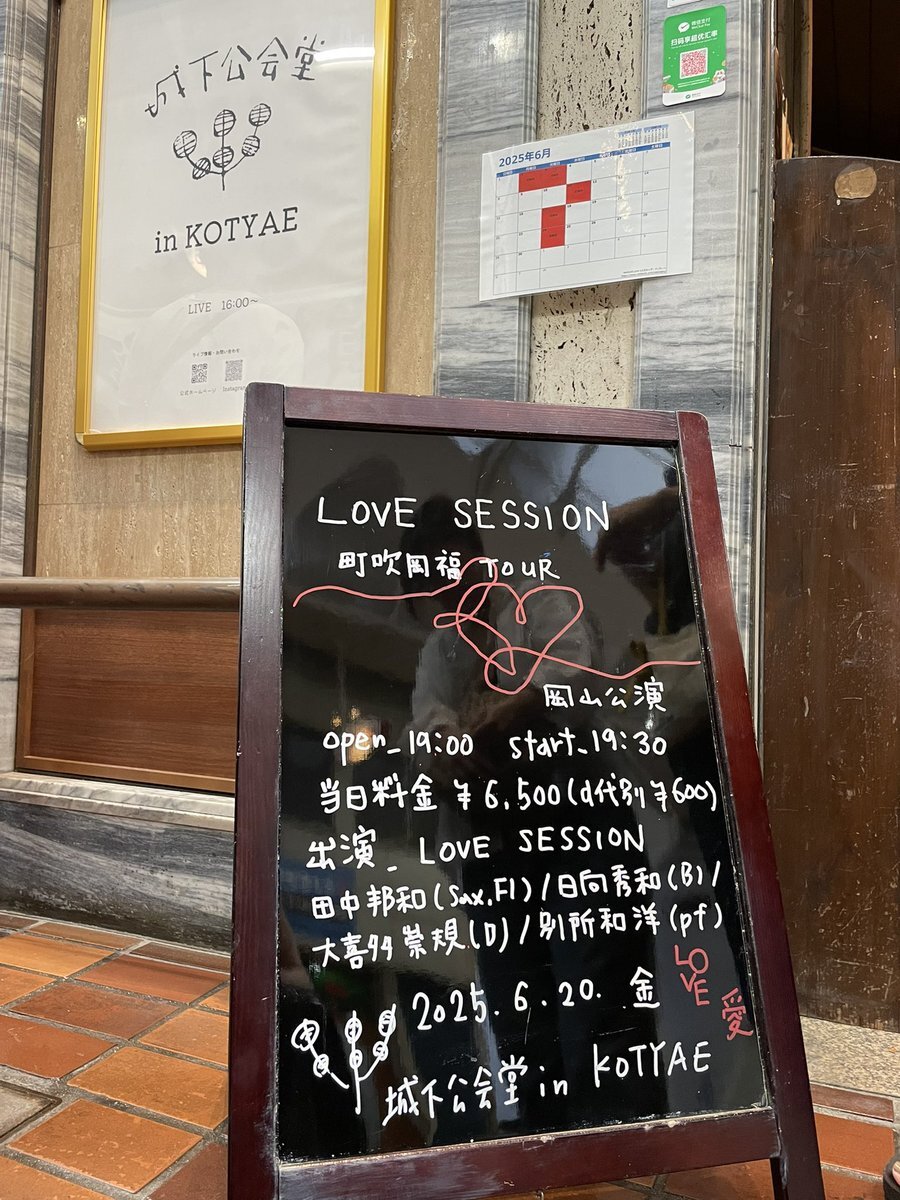 城下公会堂
in KOTYAE
LIVE 16:00〜
ライブ情報・お問い合わせ
公式ホームページ Instagram
微信支付
WeChat Pay
扫码享超优汇率
2025年6月
LOVE SESSION
町吹岡福 TOUR
岡山公演
open_19:00 start_19:30
当日料金 ¥6,500(d代別¥600)
出演_LOVE SESSION
田中邦和(Sax,Fl)/日向秀和(B)/
大喜多崇規(D)/別所和洋(pf)
LOVE
愛
2025.6.20. 金
城下公会堂 in KOTYAE